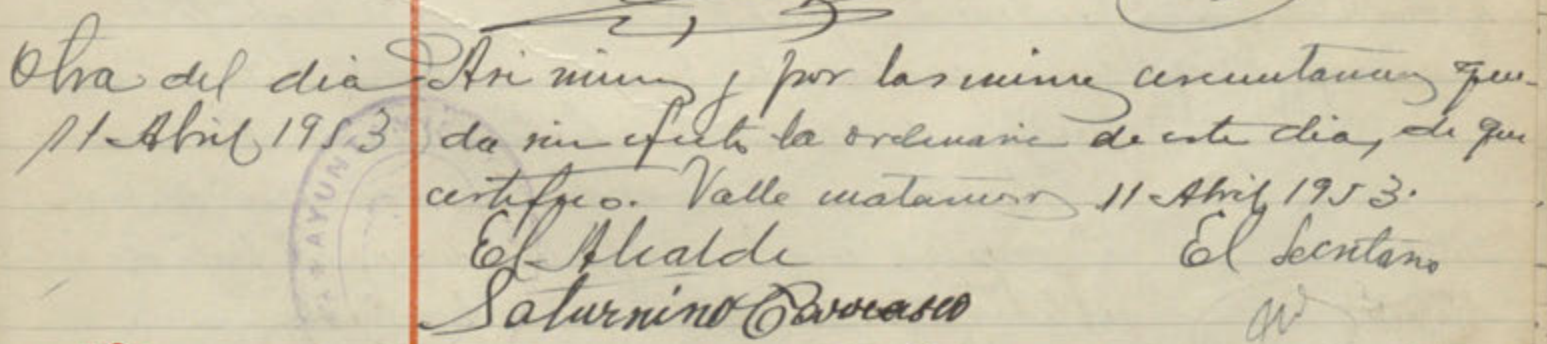 Otra del dia
11 Abril 1953
Asi mismo y por las mismas circunstancias que-
da sin efecto la ordinaria de este dia, de que
certifico. Valle matamoros 11 Abril 1953.
El Alcalde El Secretario
Saturnino Carrasco
AYUN